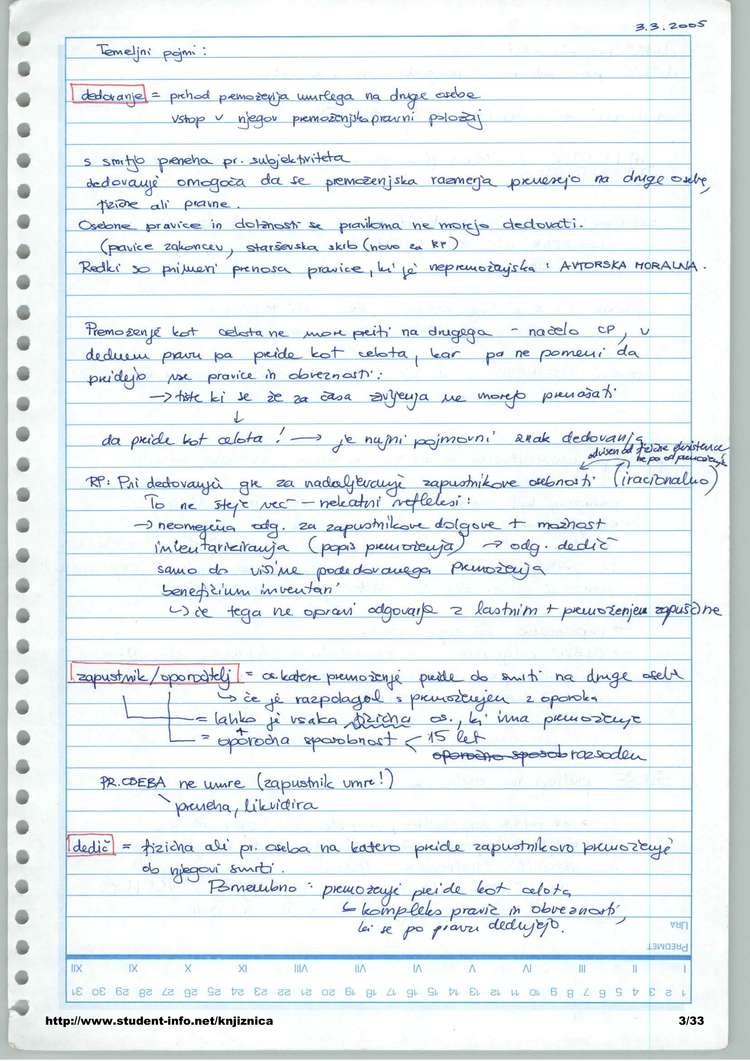 3.3.2005
Temeljni pojmi:
dedovanje = prehod premoženja umrlega na druge osebe
vstop v njegov premoženjskopravni položaj
s smrtjo preneha pr. subjektiviteta
dedovanje omogoča da se premoženjska razmerja prenesejo na druge osebe,
fizične ali pravne.
Osebne pravice in dolžnosti se praviloma ne morejo dedovati.
(pavice zakoncev, starševska skrb (novo za RP)
Redki so primeri prenosa pravice, ki je nepremoženjska: AVTORSKA MORALNA.
Premoženje kot celota ne more preiti na drugega - načelo CP, v
dednem pravu pa preide kot celota, kar pa ne pomeni da
preidejo vse pravice in obveznosti:
→ tiste ki se že za časa življenja ne morejo prenašati
↓
da preide kot celota! → je nujni pojmovni znak dedovanja
odvisen od fizične eksistence
ne pa od premoženja
RP: Pri dedovanju gre za nadaljevanje zapustnikove osebnosti (iracionalno)
To ne šteje več - nekateri refleksi:
→ neomejena odg. za zapustnikove dolgove + možnost
inventariziranja (popis premoženja) → odg. dedič
samo do višine podedovanega premoženja
beneficium inventari
↳ če tega ne opravi odgovarja z lastnim + premoženjem zapuščine
zapustnik/oporočitelj = os. katere premoženje preide do smrti na druge osebe
↳ če je razpolagal s premoženjem z oporoko
= lahko je vsaka fizična os., ki ima premoženje
+
= oporočna sposobnost < 15 let
oporočno sposob razsoden
PR. OSEBA ne umre (zapustnik umre!)
preneha, likvidira
dedič = fizična ali pr. oseba na katero preide zapustnikovo premoženje
ob njegovi smrti.
Pomembno: premoženje preide kot celota
↳ kompleks pravic in obveznosti,
ki se po pravu dedujejo.
URA
PREDMET
I II III IV V VI VII VIII IX X XI XII
1 2 3 4 5 6 7 8 9 10 11 12 13 14 15 16 17 18 19 20 21 22 23 24 25 26 27 28 29 30 31
http://www.student-info.net/knjiznica
3/33